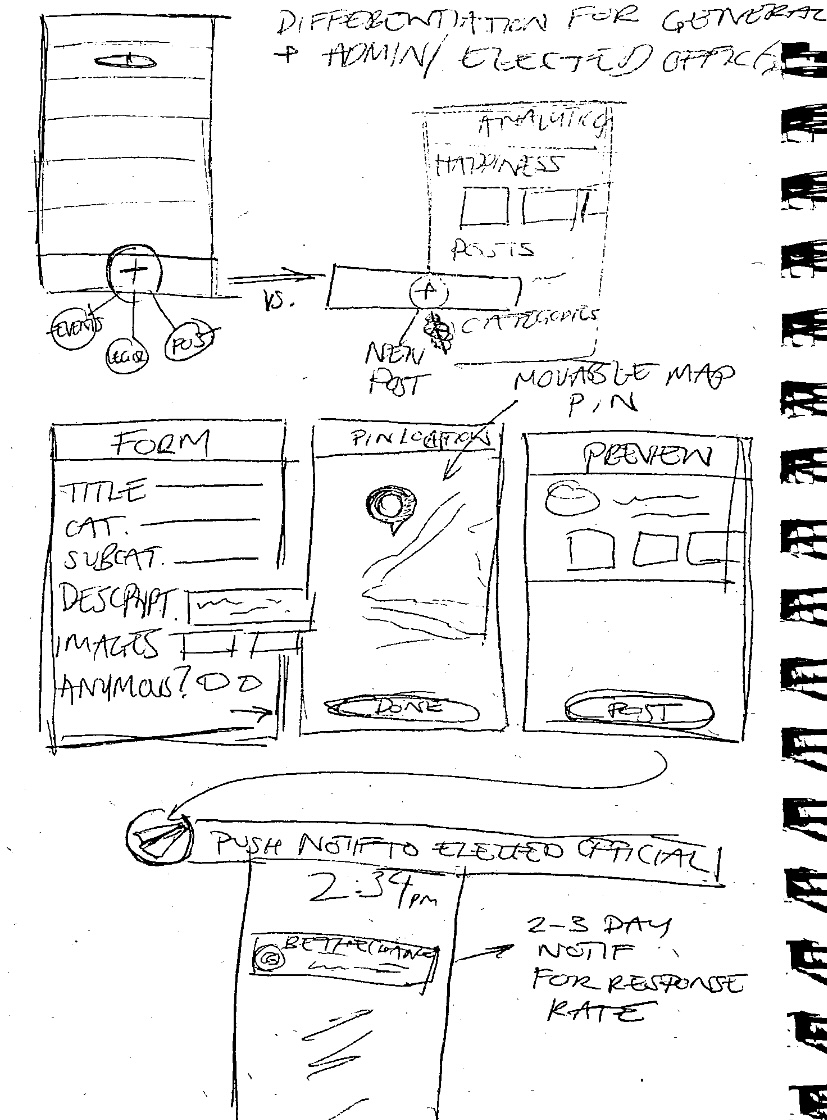 DIFFERENTIATION FOR GENERAL
+ ADMIN/ ELECTED OFFICIAL
ANALYTICS
HAPPINESS
POSTS
CATEGORIES
+
VS.
+
EVENTS
POST
NEW
POST
MOVABLE MAP
PIN
FORM
TITLE
CAT.
SUBCAT.
DESCRIPT.
IMAGES
ANYMOUS?
PIN LOCATION
DONE
PREVIEW
POST
PUSH NOTIF TO ELECTED OFFICIAL
2:34 PM
BETHECHANGE
2-3 DAY
NOTIF
FOR RESPONSE
RATE